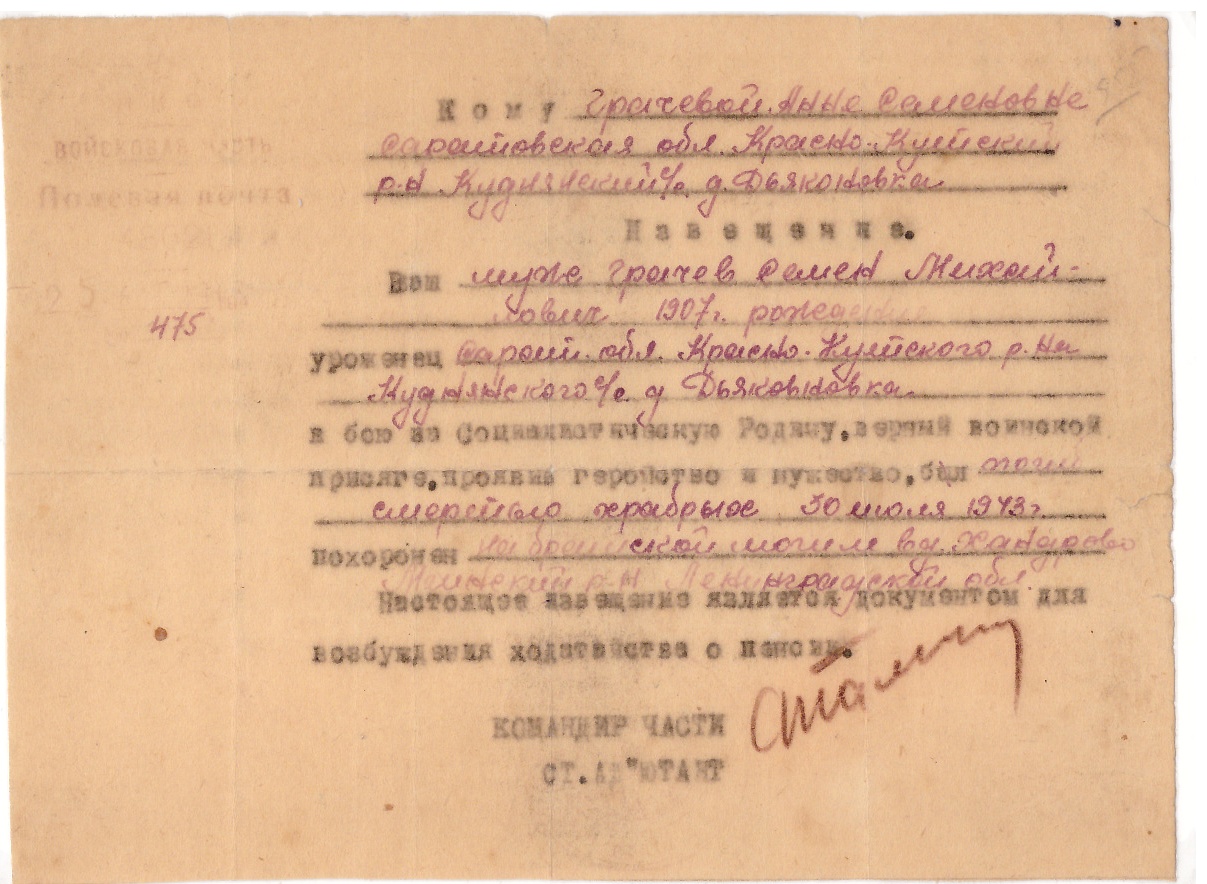 Кому Грачевой Анне Семеновне
Саратовская обл. Красно-Кутский
р-н Куднянский с/с д. Дьяконовка
Извещение.
войсковая часть
Полевая почта
25
475
Ваш муже Грачев Семен Михай-
лович 1907г. рождения
уроженец Сарат. обл. Красно-Кутского р-на
Куднянского с/с д Дьяковновка
в бою за Социалистическую Родину, верный воинской
присяге, проявив геройство и мужество, был погиб
смертью храбрых 30 июля 1943г
похоронен на братской могил в д. Хандрово
Мгинский р-н Ленинградской обл
Настоящее извещение является документом для
возбуждения ходатайства о пенсии.
КОМАНДИР ЧАСТИ
СТ.АД"ЮТАНТ